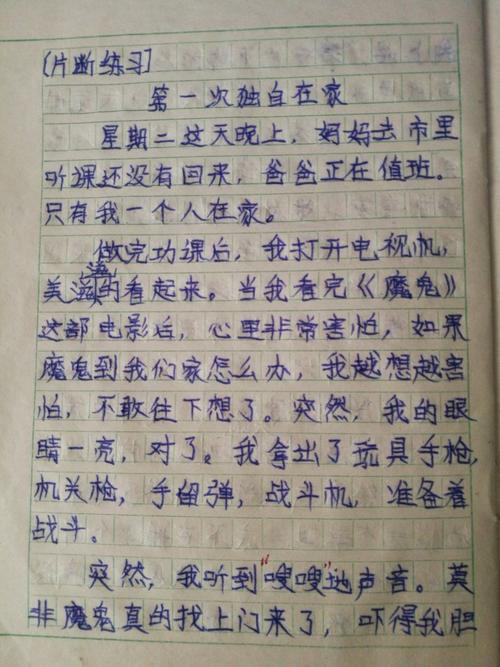 [片断练习]
第一次独自在家
星期二这天晚上，妈妈去市里
听课还没有回来，爸爸正在值班。
只有我一个人在家。
做完功课后，我打开电视机，
美滋滋的看起来。当我看完《魔鬼》
这部电影后，心里非常害怕，如果
魔鬼到我们家怎么办，我越想越害
怕，不敢往下想了。突然，我的眼
睛一亮，对了。我拿出了玩具手枪，
机关枪，手留弹，战斗机，准备着
战斗。
突然，我听到“嗖嗖”地声音。莫
非魔鬼真的找上门来了，吓得我胆